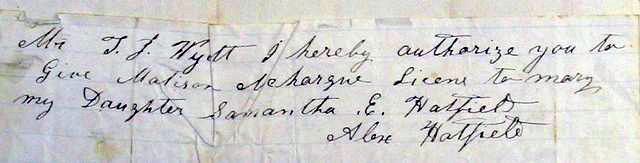 Mr T. J. Wyatt I hereby authorize you to
Give Matison Mchargue Licens to mary
my Daughter Samantha E. Hatfield
Alex Hatfield